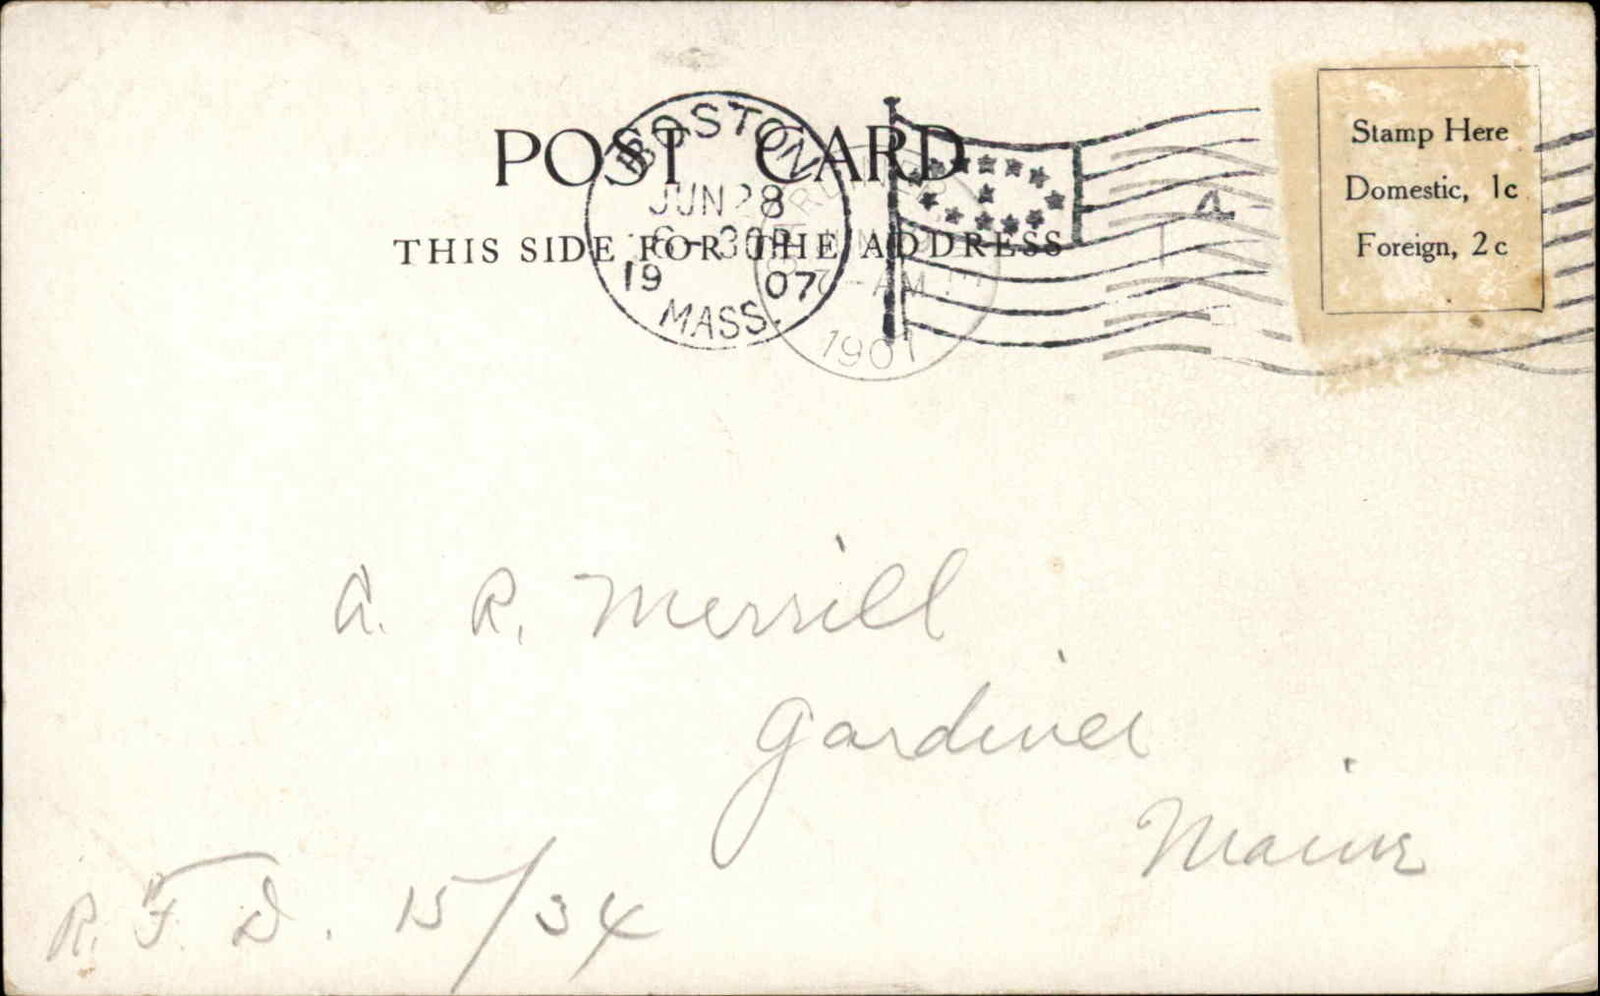 POST CARD
THIS SIDE FOR THE ADDRESS
BOSTON
JUN 28
6-30P
1907
MASS.
AM
1907
Stamp Here
Domestic, 1c
Foreign, 2c
A. R. Merrill
Gardiner
Maine
R. F. D. 15/34